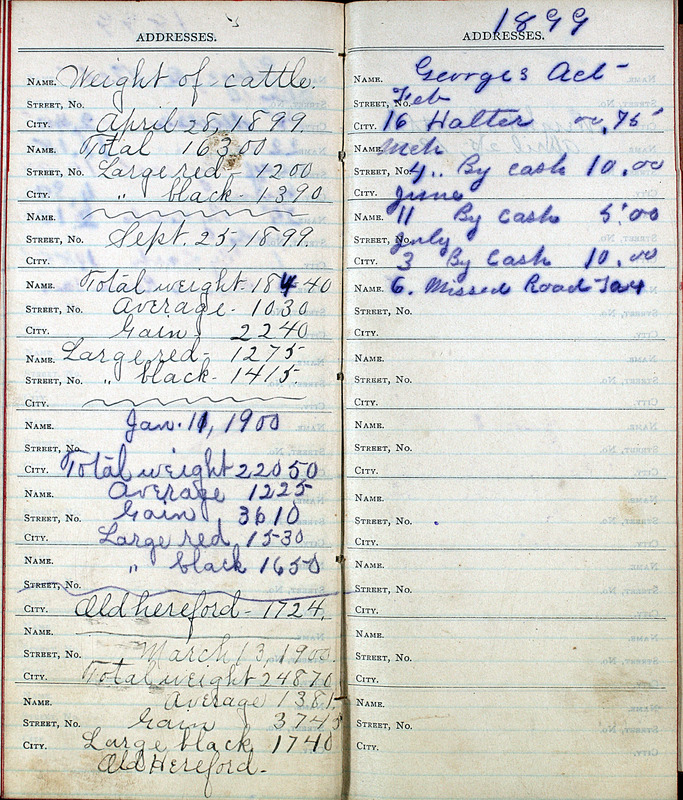 ADDRESSES.
NAME. Weight of cattle.
STREET, No.
CITY. April 28, 1899.
NAME. Total 16300
STREET, No. Large red - 1200
CITY. " black - 1390
NAME.
STREET, No. Sept. 25, 1899.
CITY.
NAME. Total weight - 18440
STREET, No. Average - 1030
CITY. Gain 2240
NAME. Large red - 1275
STREET, No. " black - 1415
CITY.
NAME. Jan. 11, 1900
STREET, No.
CITY. Total weight 22050
NAME. Average 1225
STREET, No. Gain 3610
CITY. Large red, 1530
NAME. " black 1650
STREET, No.
CITY. Old hereford - 1724.
NAME.
STREET, No. March 13, 1900.
CITY. Total weight 24870
NAME. Average 1381
STREET, No. Gain 3745
CITY. Large black 1740
Old Hereford.
1899
ADDRESSES.
NAME. George's Act-
STREET, No. Feb
CITY. 16 Halter 00.75
NAME. Mch
STREET, No. 4 .. By cash 10.00
CITY. June
NAME. 11 By cash 5.00
STREET, No. July
CITY. 3 By Cash 10.00
NAME. 6. Missed Road Tax
STREET, No.
CITY.
NAME.
STREET, No.
CITY.
NAME.
STREET, No.
CITY.
NAME.
STREET, No.
CITY.
NAME.
STREET, No.
CITY.
NAME.
STREET, No.
CITY.
NAME.
STREET, No.
CITY.